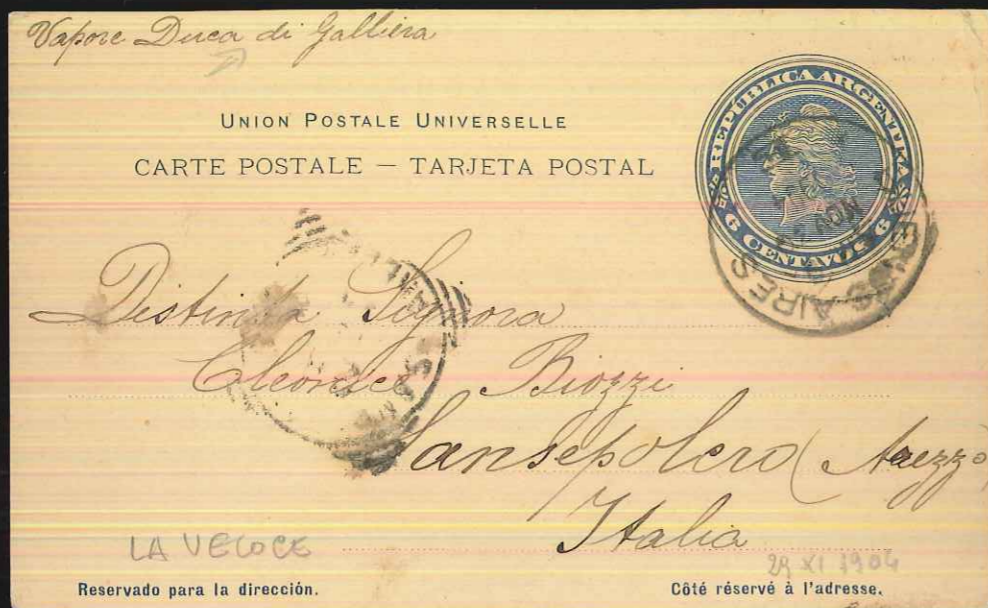 Vapore Duca di Galliera
UNION POSTALE UNIVERSELLE
CARTE POSTALE — TARJETA POSTAL
REPÚBLICA ARGENTINA
6 CENTAVOS 6
NOV
AIRES
Distinta Signora
Cleonice Biozzi
Sansepolcro (Arezzo)
Italia
LA VELOCE
29 XI 1904
Reservado para la dirección.
Côté réservé à l'adresse.